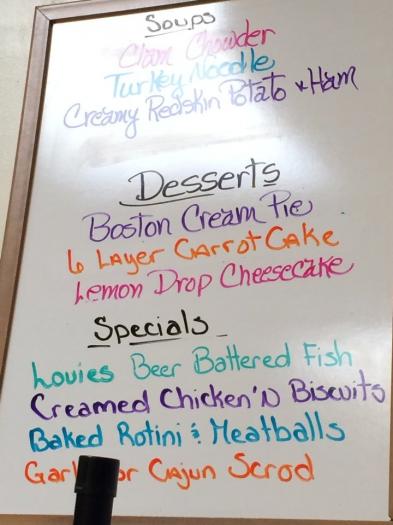 Soups
Clam Chowder
Turkey Noodle
Creamy Redskin Potato & Ham
Desserts
Boston Cream Pie
6 Layer Carrot Cake
Lemon Drop Cheesecake
Specials
Louies Beer Battered Fish
Creamed Chicken 'N Biscuits
Baked Rotini & Meatballs
or Cajun Scrod